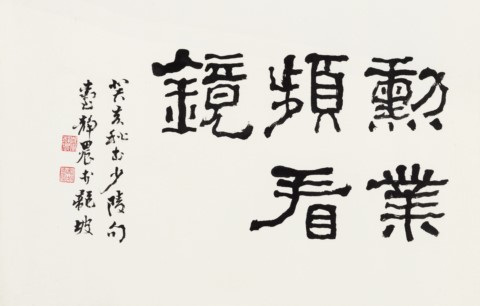 勳業
頻看
鏡
癸亥秋書少陵句
臺靜農於龍坡